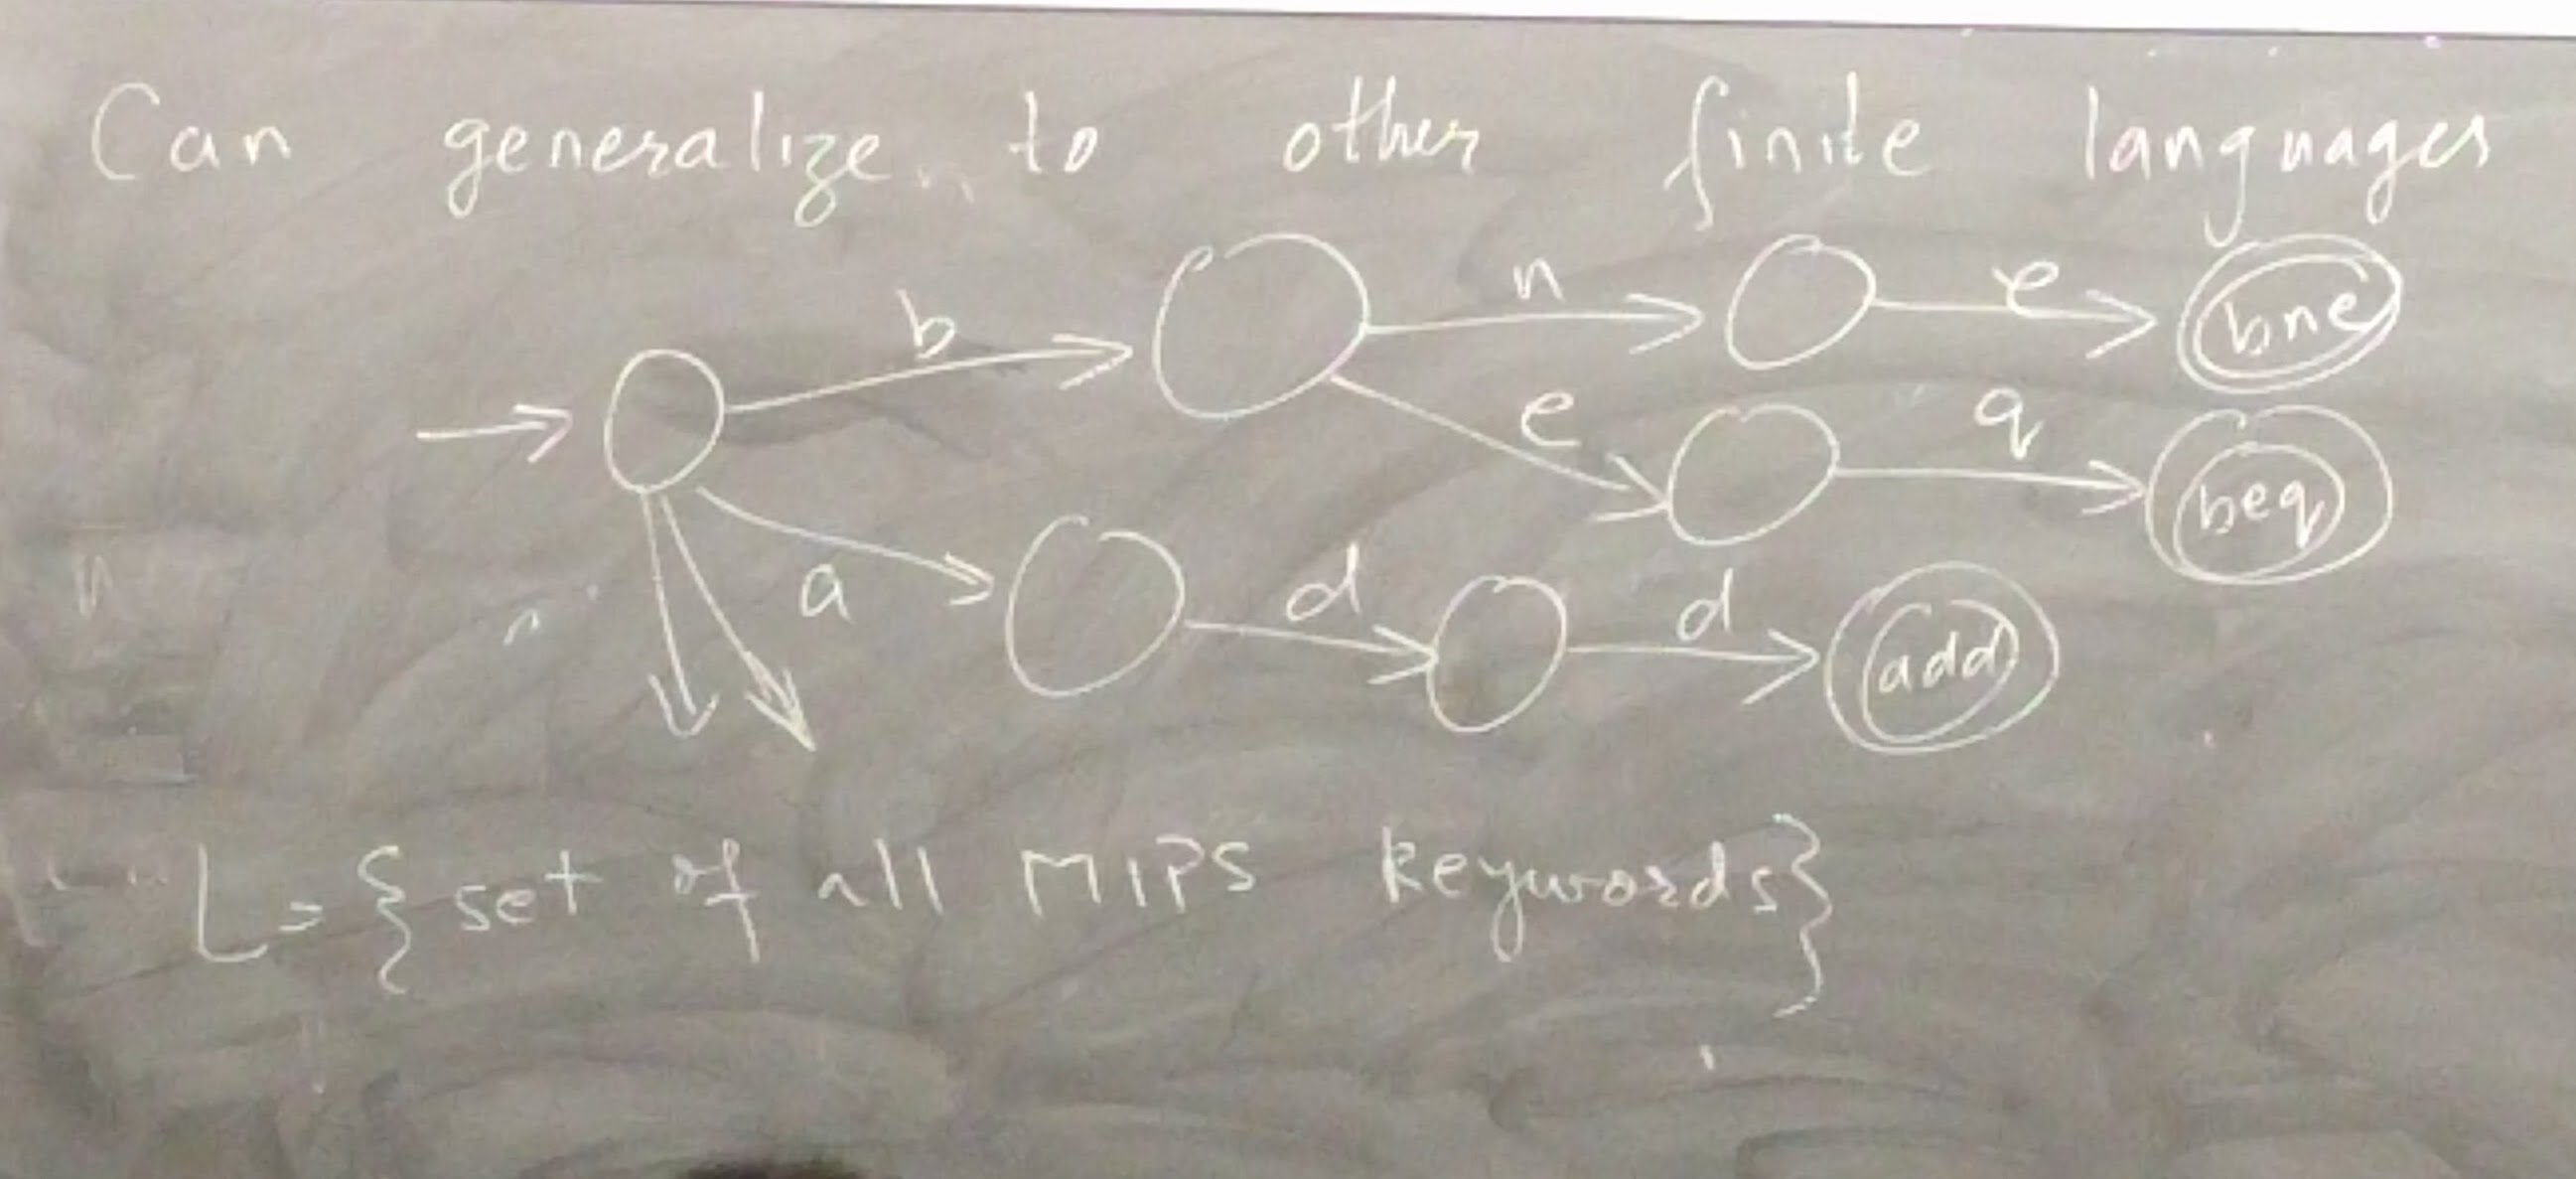 Can generalize to other finite languages
b n e bne
e q beq
a d d add
L = { set of all MIPS keywords }